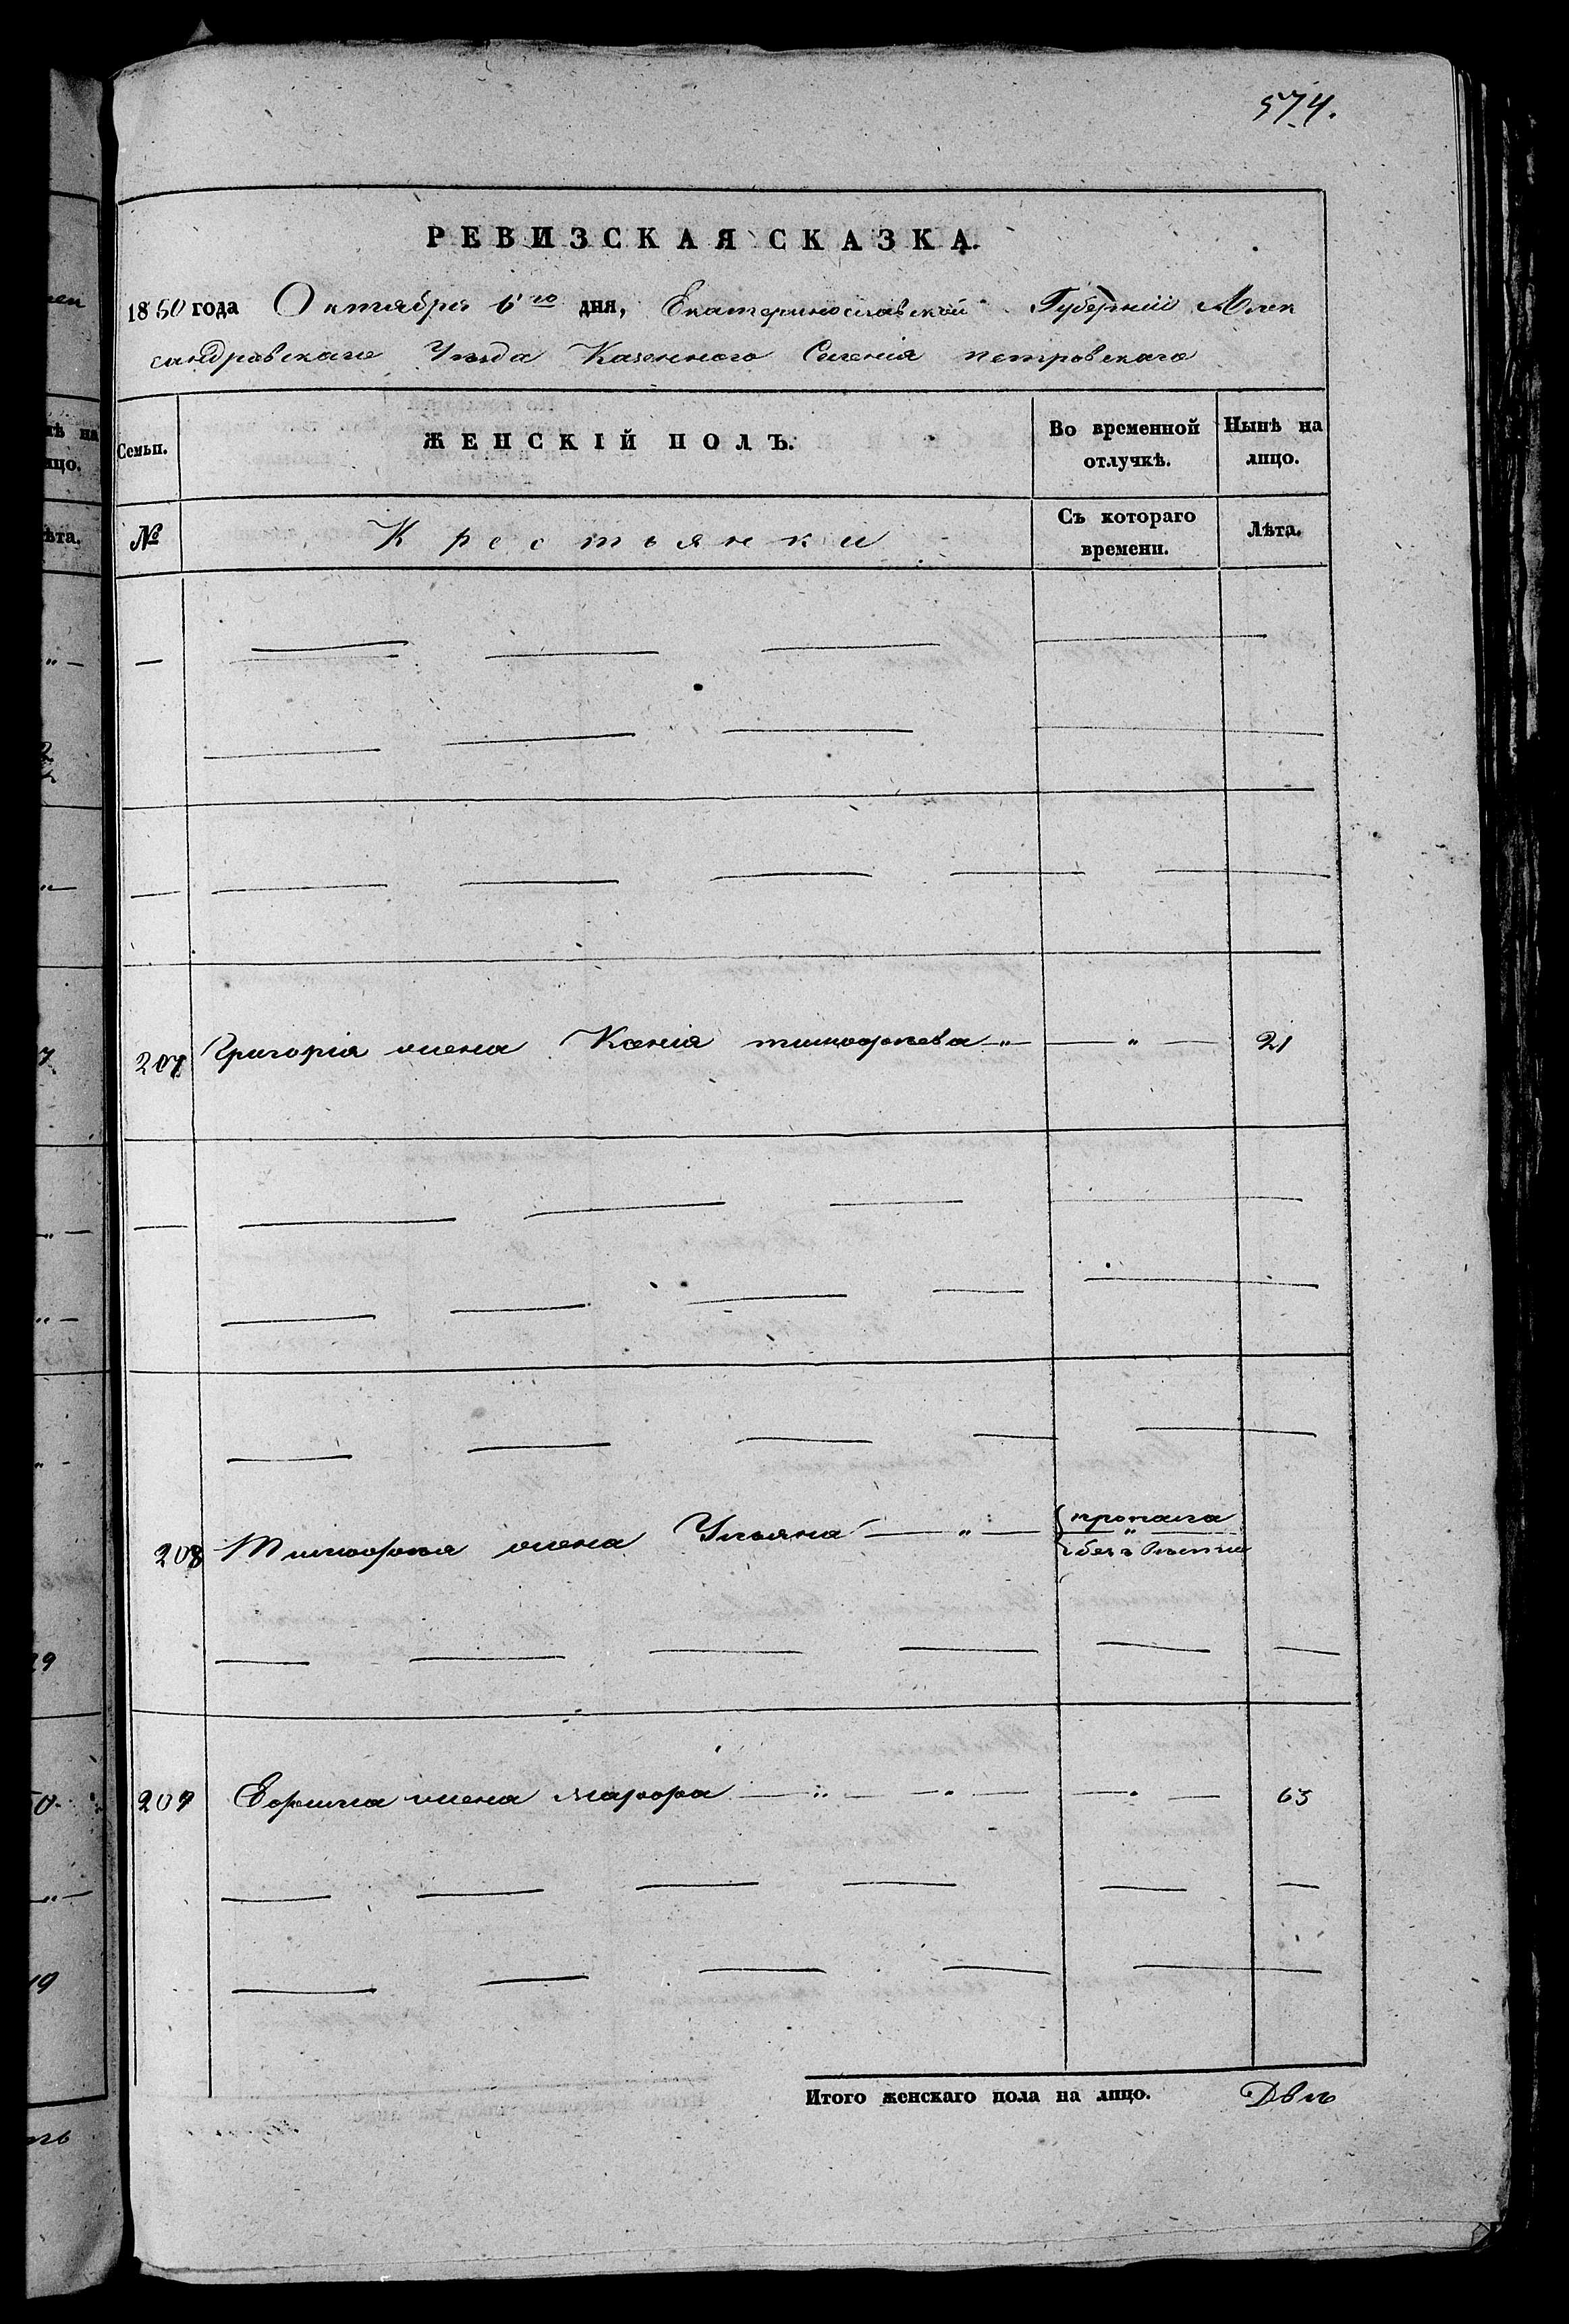 574.
РЕВИЗСКАЯ СКАЗКА.
1850 года Октября 6го дня, Екатеринославской Губерніи Алек
сандровскаго Уѣзда Казенного Селенія петровскаго
Семьи.
ЖЕНСКІЙ ПОЛЪ.
Во временной отлучкѣ.
Нынѣ на лицо.
№
Крестьянки
Съ котораго времени.
Лѣта.
207 Григорія жена Ксенія тимофѣева 21
208 Тимофѣя жена Ульяна пропала
безъ вѣсти
209 Ефима жена марфа 63
Итого женскаго пола на лицо. Двѣ